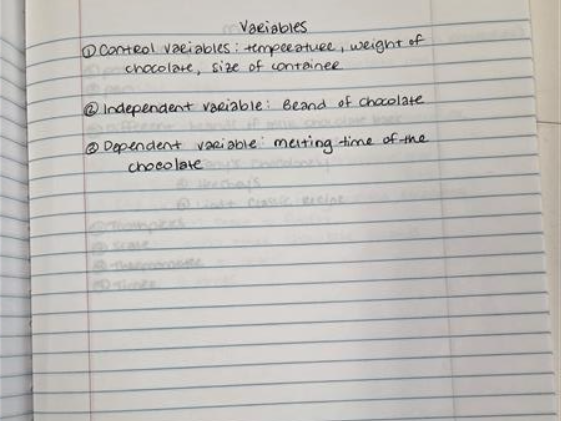 Variables
① Control variables: temperature, weight of
chocolate, size of container
② Independent variable: Brand of chocolate
③ Dependent variable: melting time of the
chocolate